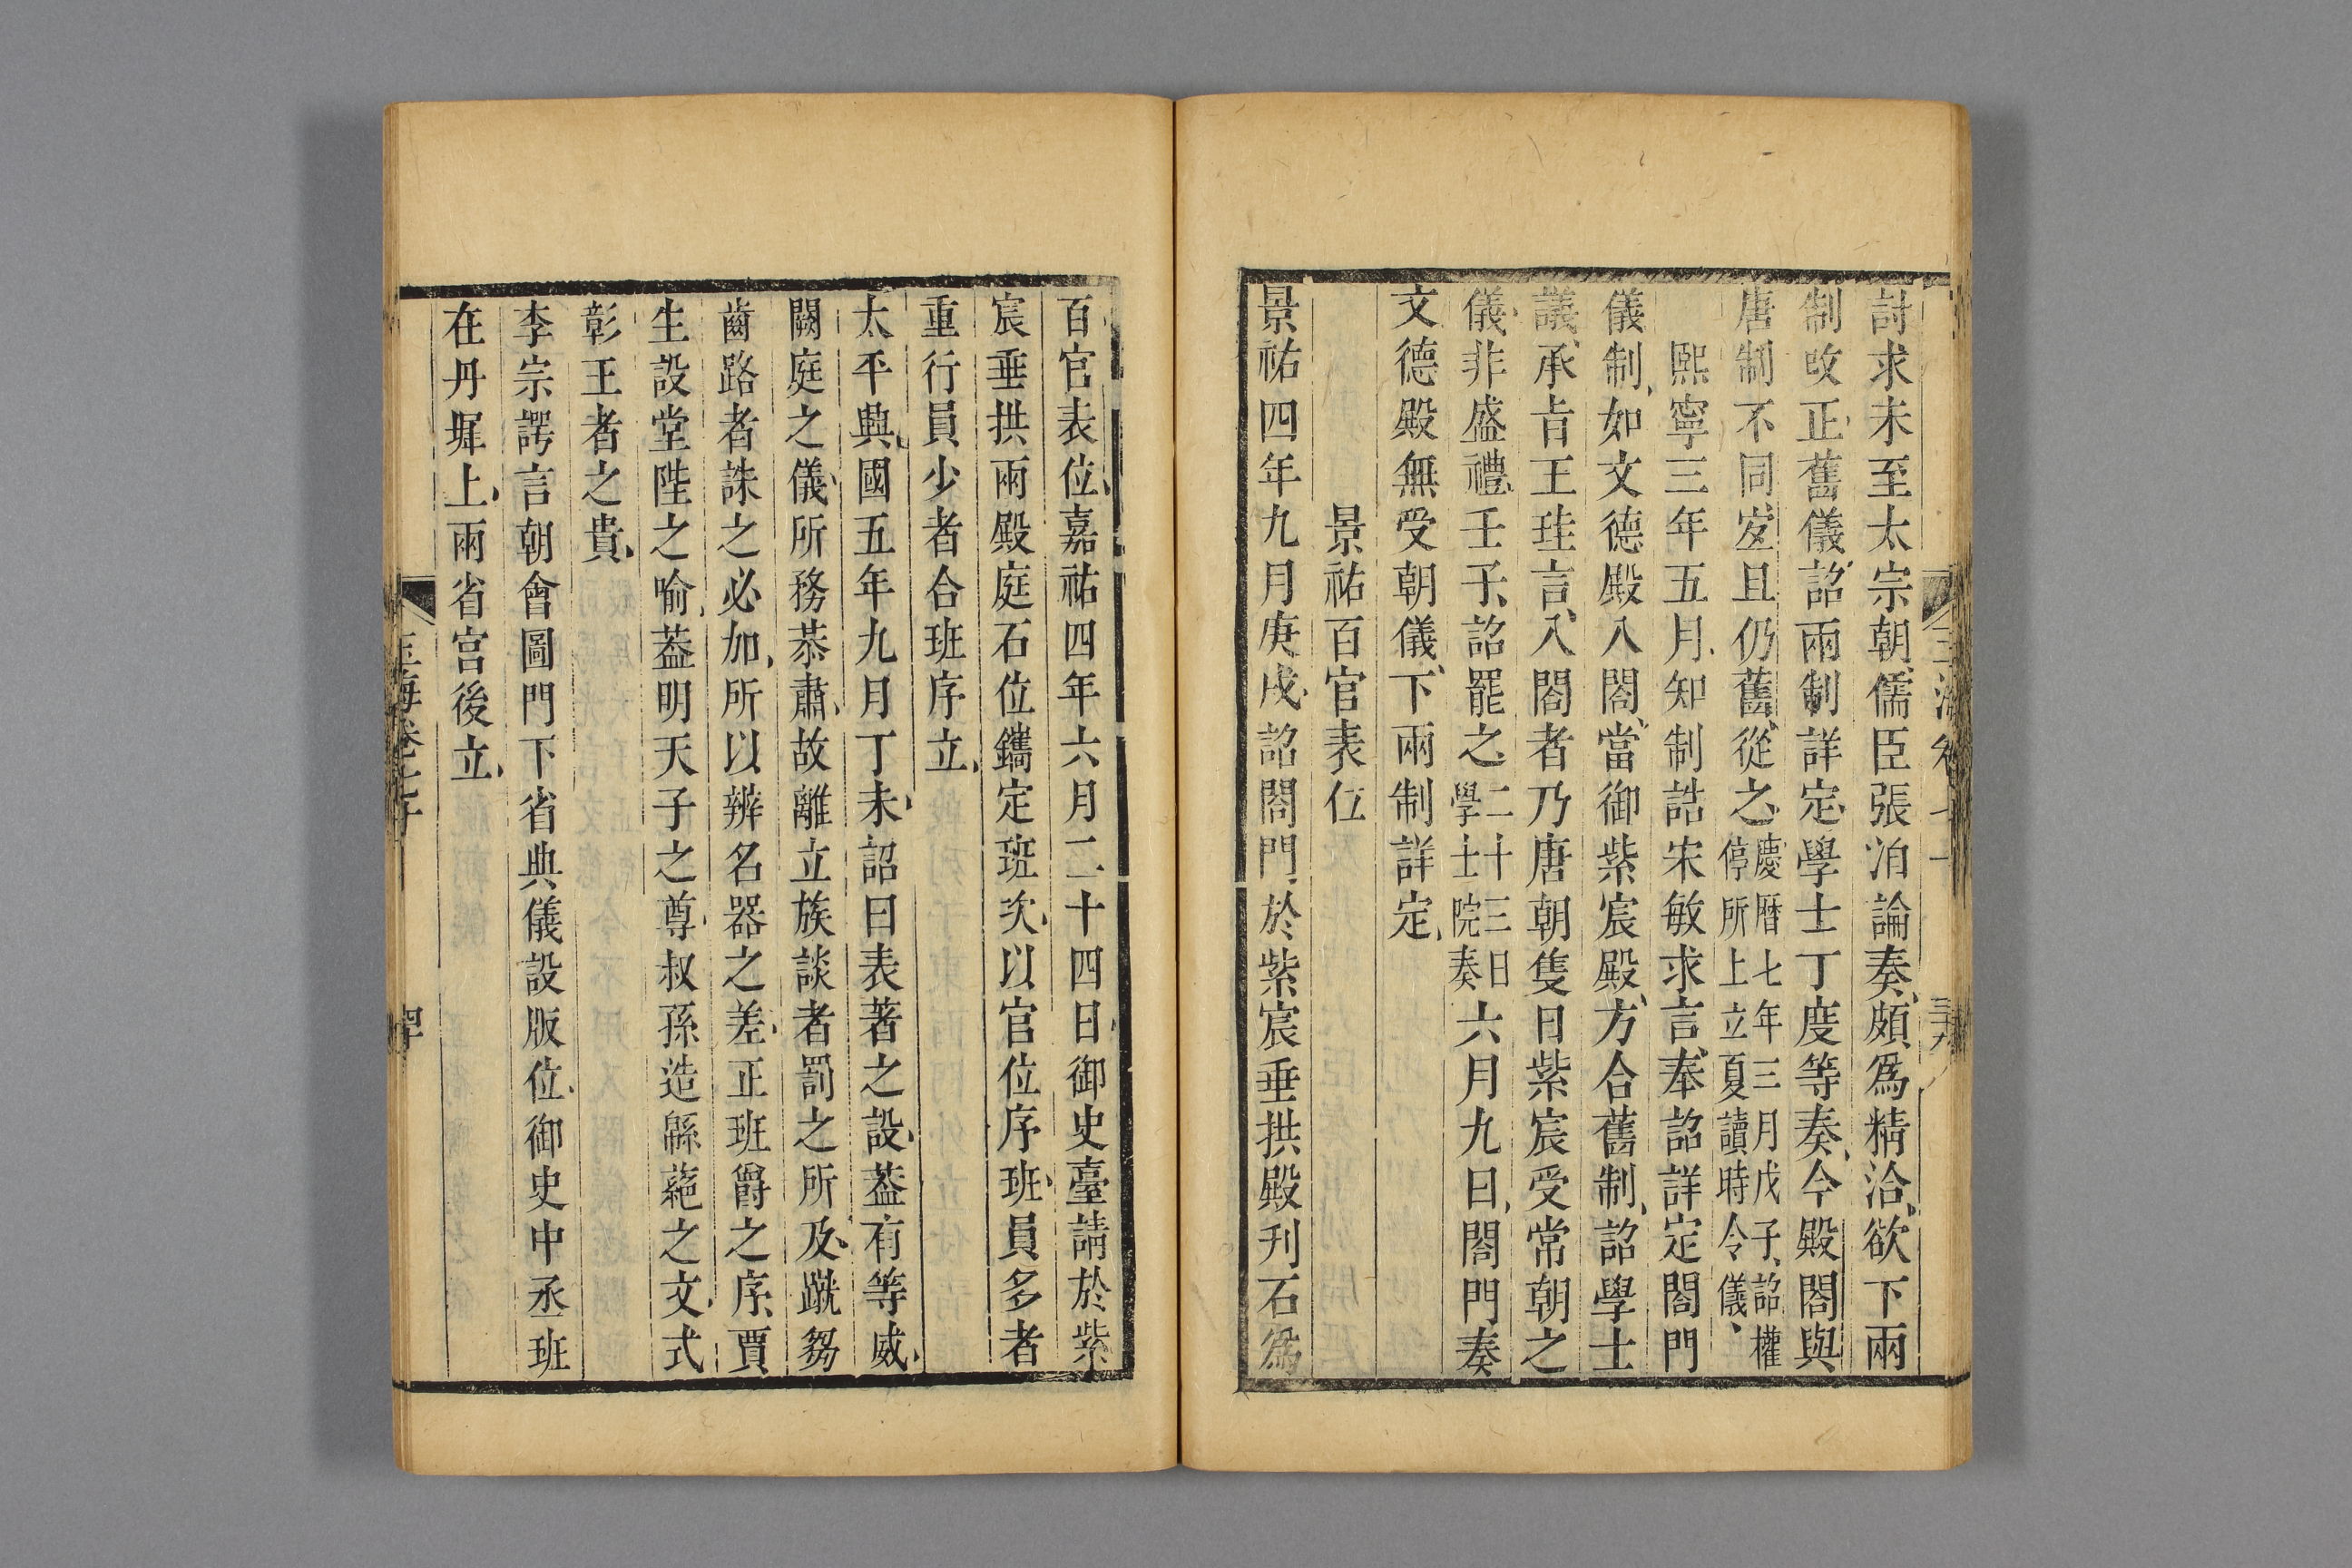 討求未至太宗朝儒臣張洎論奏頗爲精洽欲下兩
制攺正舊儀詔兩制詳定學士丁度等奏今殿閤與
唐制不同宐且仍舊從之慶曆七年三月戊子詔權停所上立夏讀時令儀
熙寧三年五月知制誥宋敏求言奉詔詳定閤門
儀制如文德殿入閤當御紫宸殿方合舊制詔學士
議承㫖王珪言入閤者乃唐朝隻日紫宸受常朝之
儀非盛禮壬子詔罷之二十三日學士院奏六月九日閤門奏
文德殿無受朝儀下兩制詳定
景祐百官表位
景祐四年九月庚戌詔閤門於紫宸垂拱殿刋石爲
百官表位嘉祐四年六月二十四日御史臺請於紫
宸垂拱兩殿庭石位鐫定班次以官位序班員多者
重行員少者合班序立
太平興國五年九月丁未詔曰表著之設葢有等威
闕庭之儀所務恭肅故離立族談者罰之所及蹴芻
齒路者誅之必加所以辨名器之差正班爵之序賈
生設堂陛之喻葢明天子之尊叔孫造緜蕝之文式
彰王者之貴
李宗諤言朝會圖門下省典儀設版位御史中丞班
在丹墀上兩省官後立
玉海卷七十